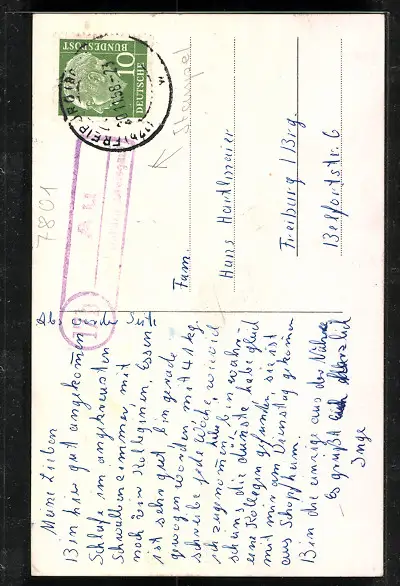 Meine Lieben
Bin hier gut angekommen
Schlafe im angrenzsten
Schwesternzimmer mit
noch zwei Kolleginen. Essen
ist sehr gut bin gerade
gewogen worden mit 41 kg.
schreibe jede Woche wieviel
ich zugenommen habe bin wahr
schein. die dünnste habe gleich
eine Kollegin gefunden, sie ist
mit mir am Dienstag gekommen
aus Schopfheim.
Bin die einzige aus der Nähe
Es grüßt euch herzlich
Inge
Abs. der Seite
Fam.
Hans Hartlmaier
Freiburg / Brg.
Belfortstr. 6
Stempel
7801
Au
DEUTSCHE
BUNDESPOST
10
FREIBURG